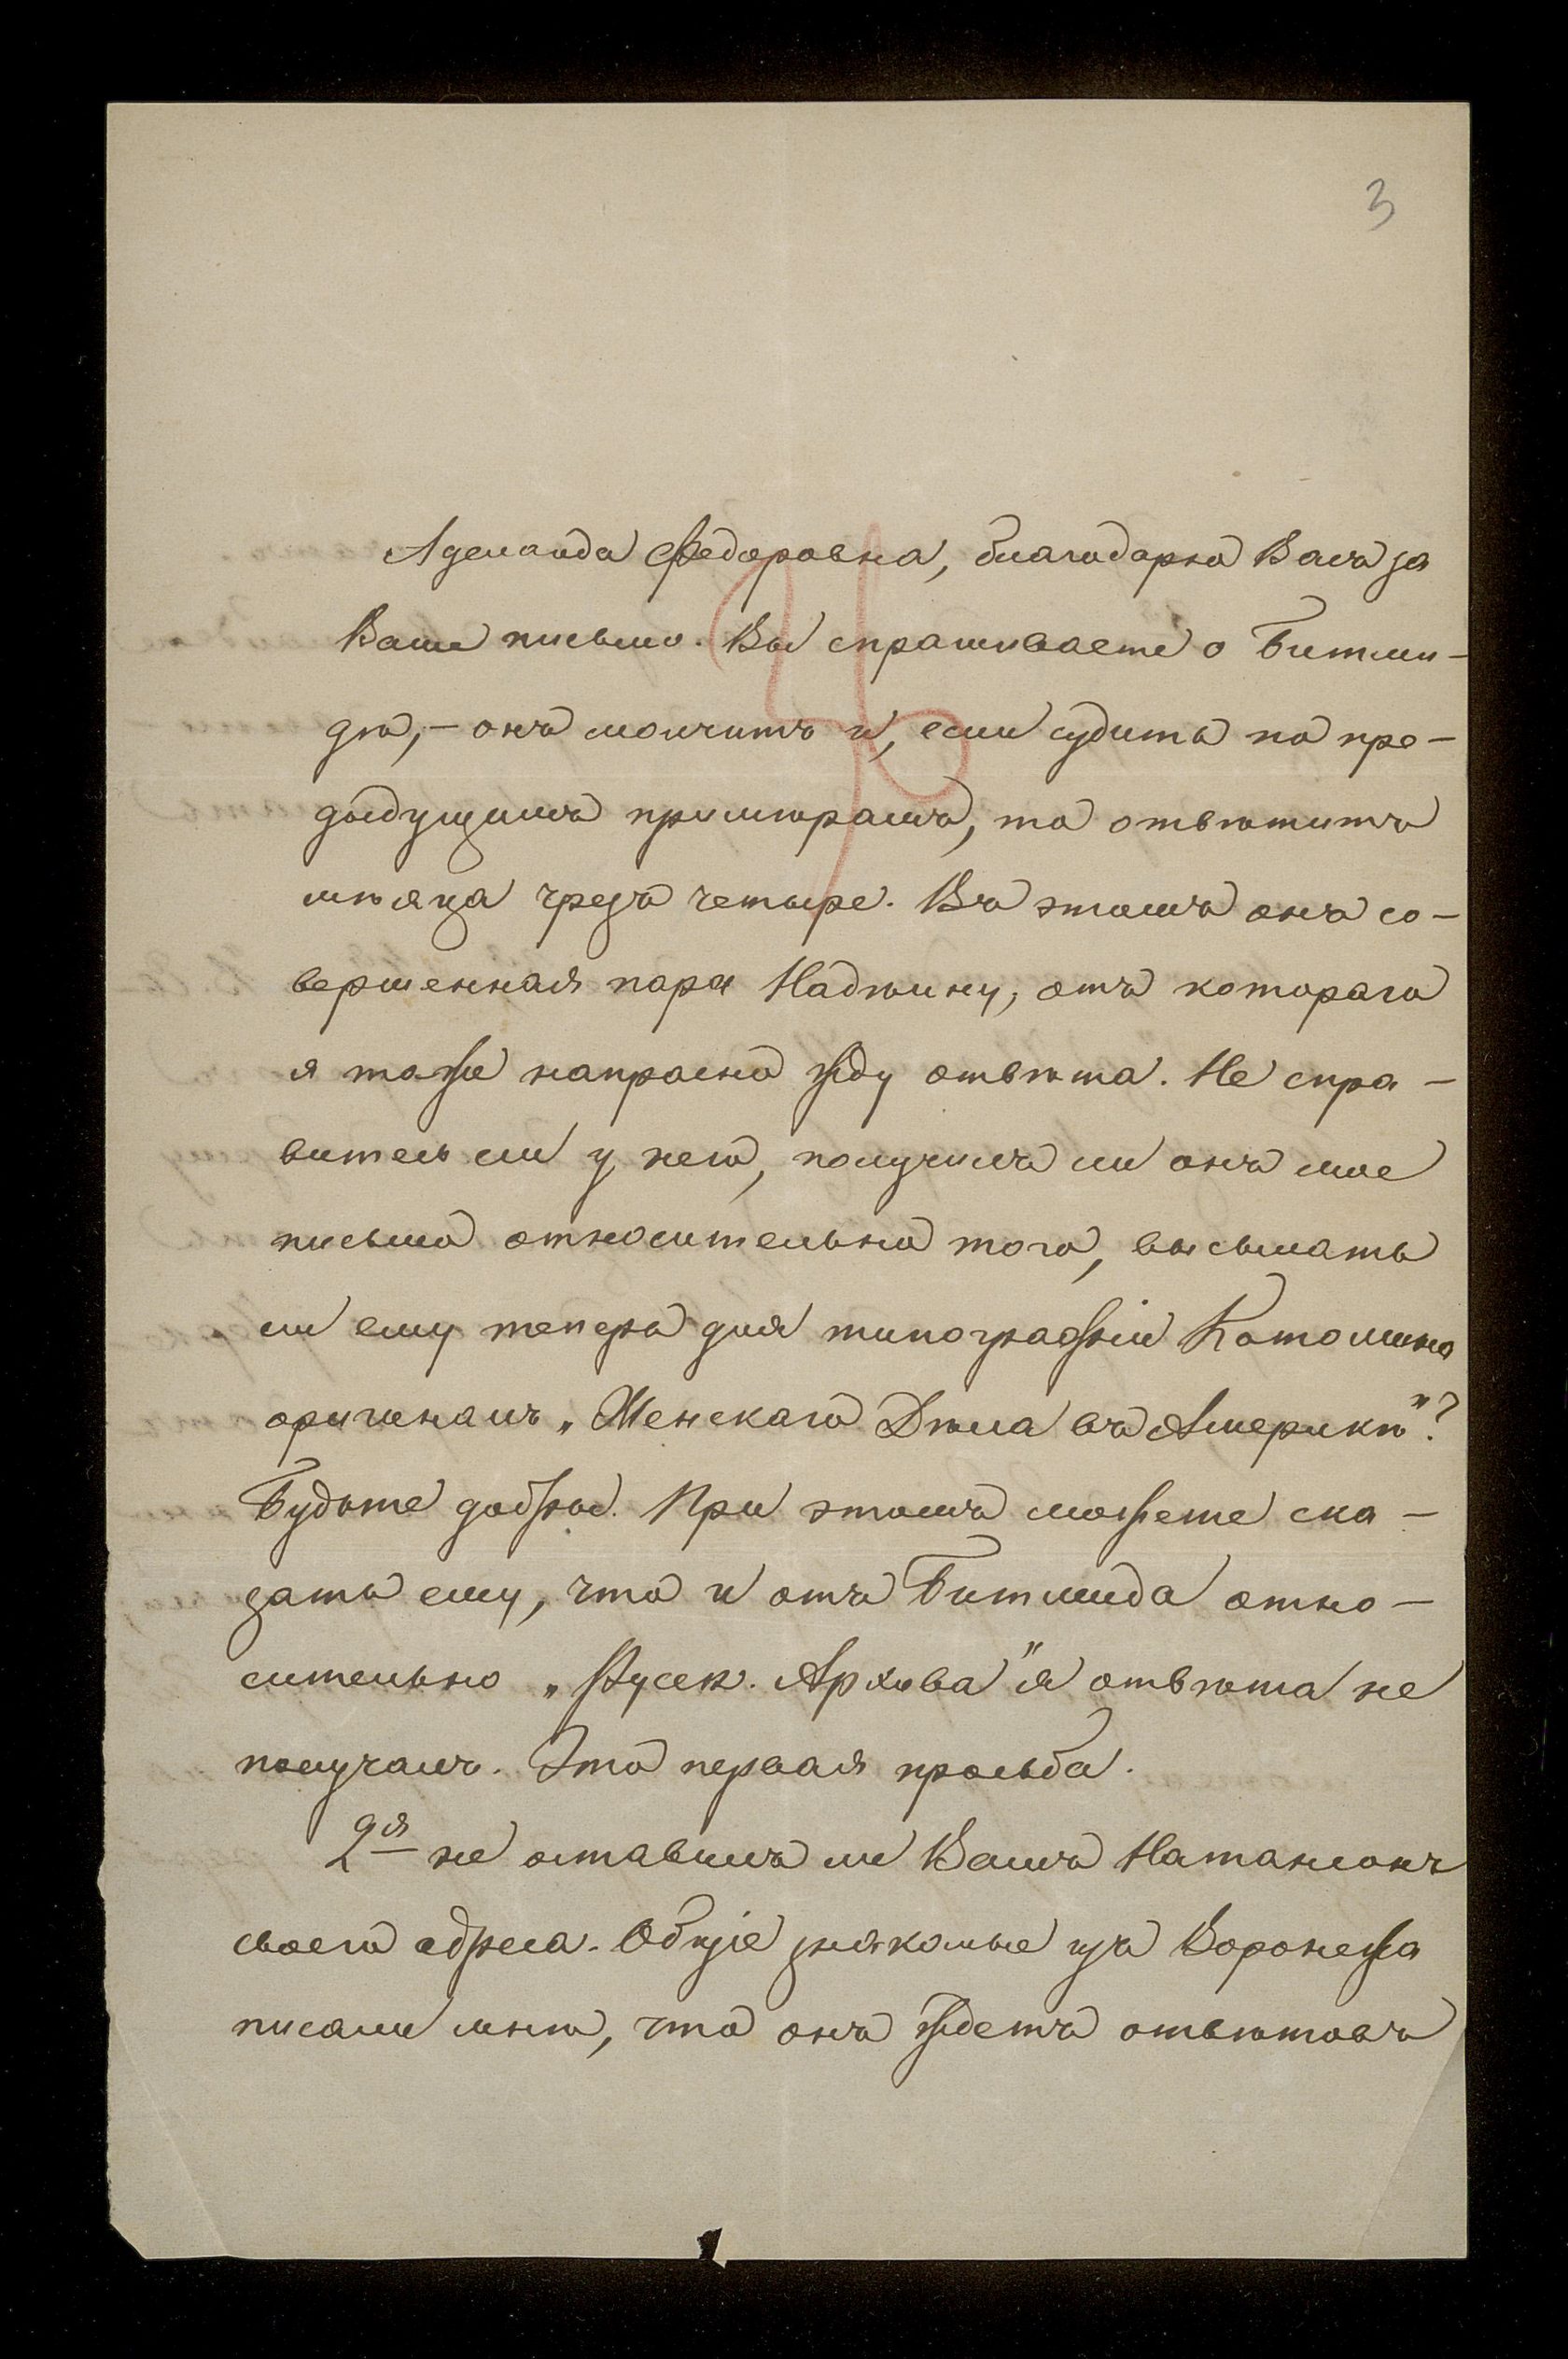 3
Аделаида Федоровна, благодарю Васъ за
Ваше письмо. Вы спрашиваете о Битми-
дѣ,- онъ молчитъ и, если судить по пре-
дыдущимъ примѣрамъ, то отвѣтитъ
мѣсяца чрезъ четыре. Въ этомъ онъ со-
вершенная пара Надѣину, отъ котораго
я тоже напрасно жду отвѣта. Не спра-
витесь ли у него, получилъ ли онъ мое
письмо относительно того, высылать
ли ему теперь для типографіи Котомина
оригиналъ „Женскаго Дѣла въ Америкѣ"?
Будьте добры. При этомъ можете ска-
зать ему, что и отъ Битмида отно-
сительно „Русск. Архива" я отвѣта не
получалъ. Это первая просьба.
2ая не оставилъ ли Вамъ Натансонъ
своего адреса. Общіе знакомые изъ Воронежа
писали мнѣ, что онъ ждетъ отвѣтовъ